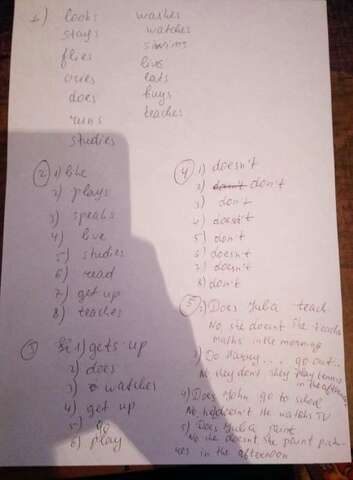 1) looks
stays
flies
cries
does
runs
studies
washes
watches
swims
live
eats
buys
teaches
2) 1) like
2) plays
3) speaks
4) live
5) studies
6) read
7) get up
8) teaches
3) 1) gets up
2) does
3) watches
4) get up
5) go
6) play
4) 1) doesn't
2) don't
3) don't
4) doesn't
5) don't
6) doesn't
7) doesn't
8) don't
5) Does Julia teach
No, she doesn't She teachs
maths in the morning
3) Do Harry... go out..
No they don't They play tennis
in the afternoon
4) Does John go to school
No, he doesn't He watchs TV
5) Does Julia paint
No she doesn't She paint pick-
res in the afternoon